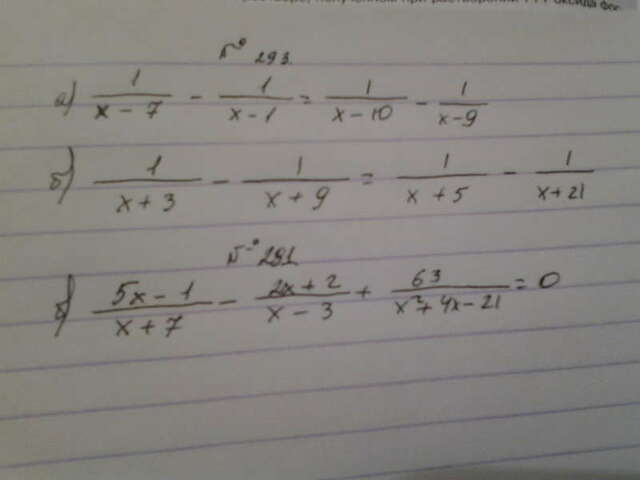 № 293.
а) 1/(x - 7) - 1/(x - 1) = 1/(x - 10) - 1/(x - 9)
б) 1/(x + 3) - 1/(x + 9) = 1/(x + 5) - 1/(x + 21)
№ 291
б) (5x - 1)/(x + 7) - (2x + 2)/(x - 3) + 63/(x² + 4x - 21) = 0